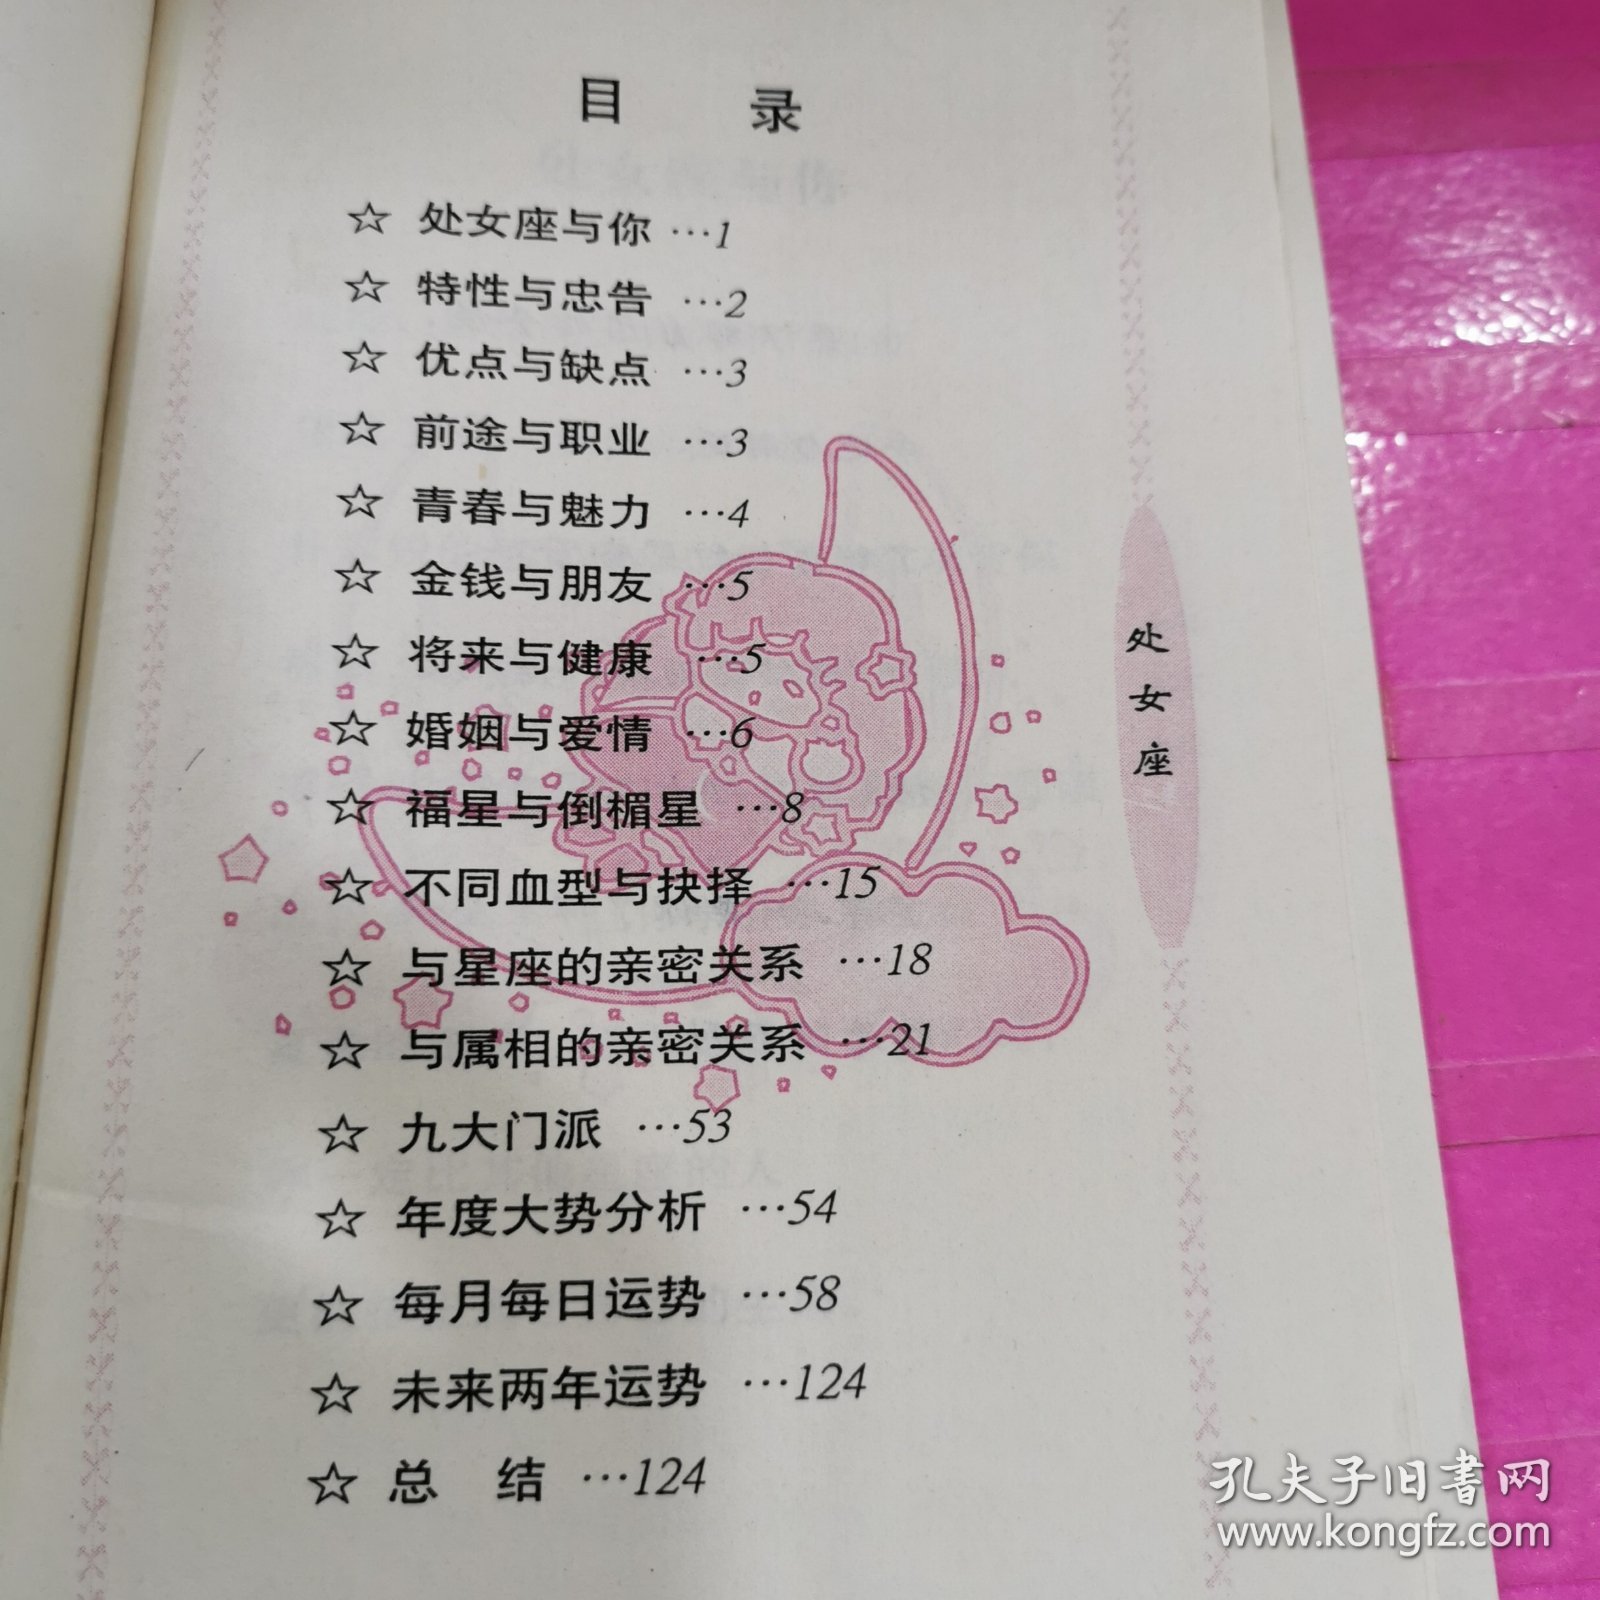 目 录
☆ 处女座与你 …1
☆ 特性与忠告 …2
☆ 优点与缺点 …3
☆ 前途与职业 …3
☆ 青春与魅力 …4
☆ 金钱与朋友 …5
☆ 将来与健康 …5
☆ 婚姻与爱情 …6
☆ 福星与倒楣星 …8
☆ 不同血型与抉择 …15
☆ 与星座的亲密关系 …18
☆ 与属相的亲密关系 …21
☆ 九大门派 …53
☆ 年度大势分析 …54
☆ 每月每日运势 …58
☆ 未来两年运势 …124
☆ 总 结 …124
处女座
孔夫子旧书网
www.kongfz.com